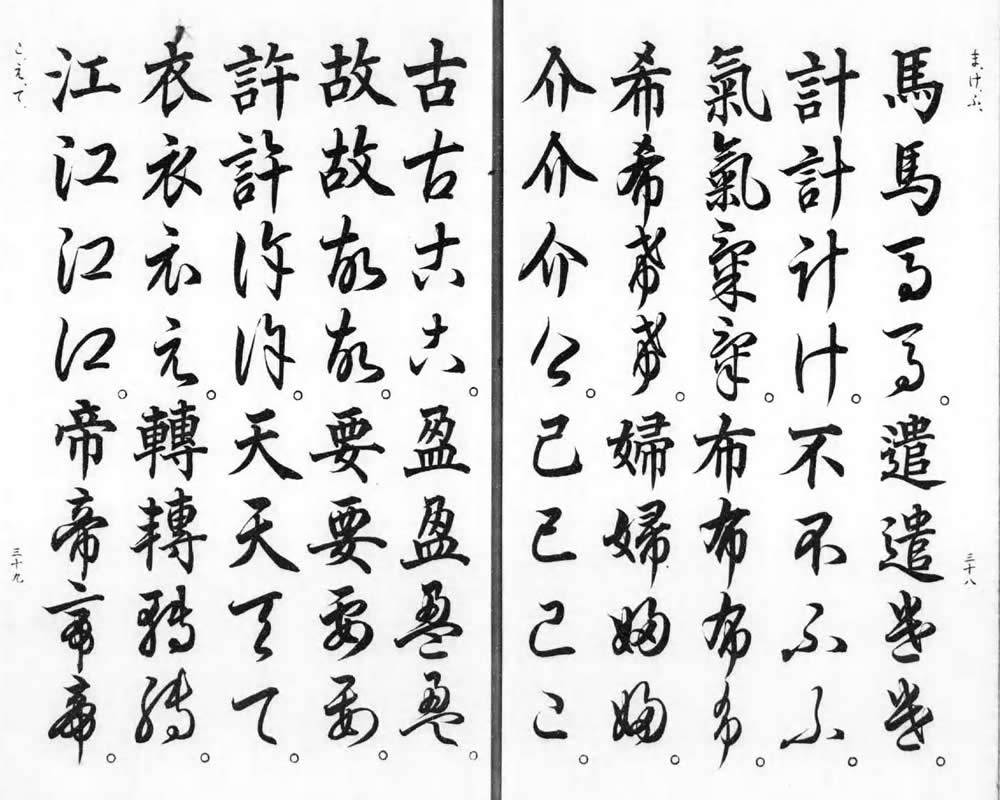 まけふ
馬馬馬馬。遣遣遣遣。
計計計計。不不不不。
氣氣氣氣。布布布布。
希希希希。婦婦婦婦。
介介介介。己己己己。
三十八
古古古古。盈盈盈盈。
故故故故。要要要要。
許許許許。天天天天。
衣衣衣衣。轉轉轉轉。
江江江江。帝帝帝帝。
こえて
三十九